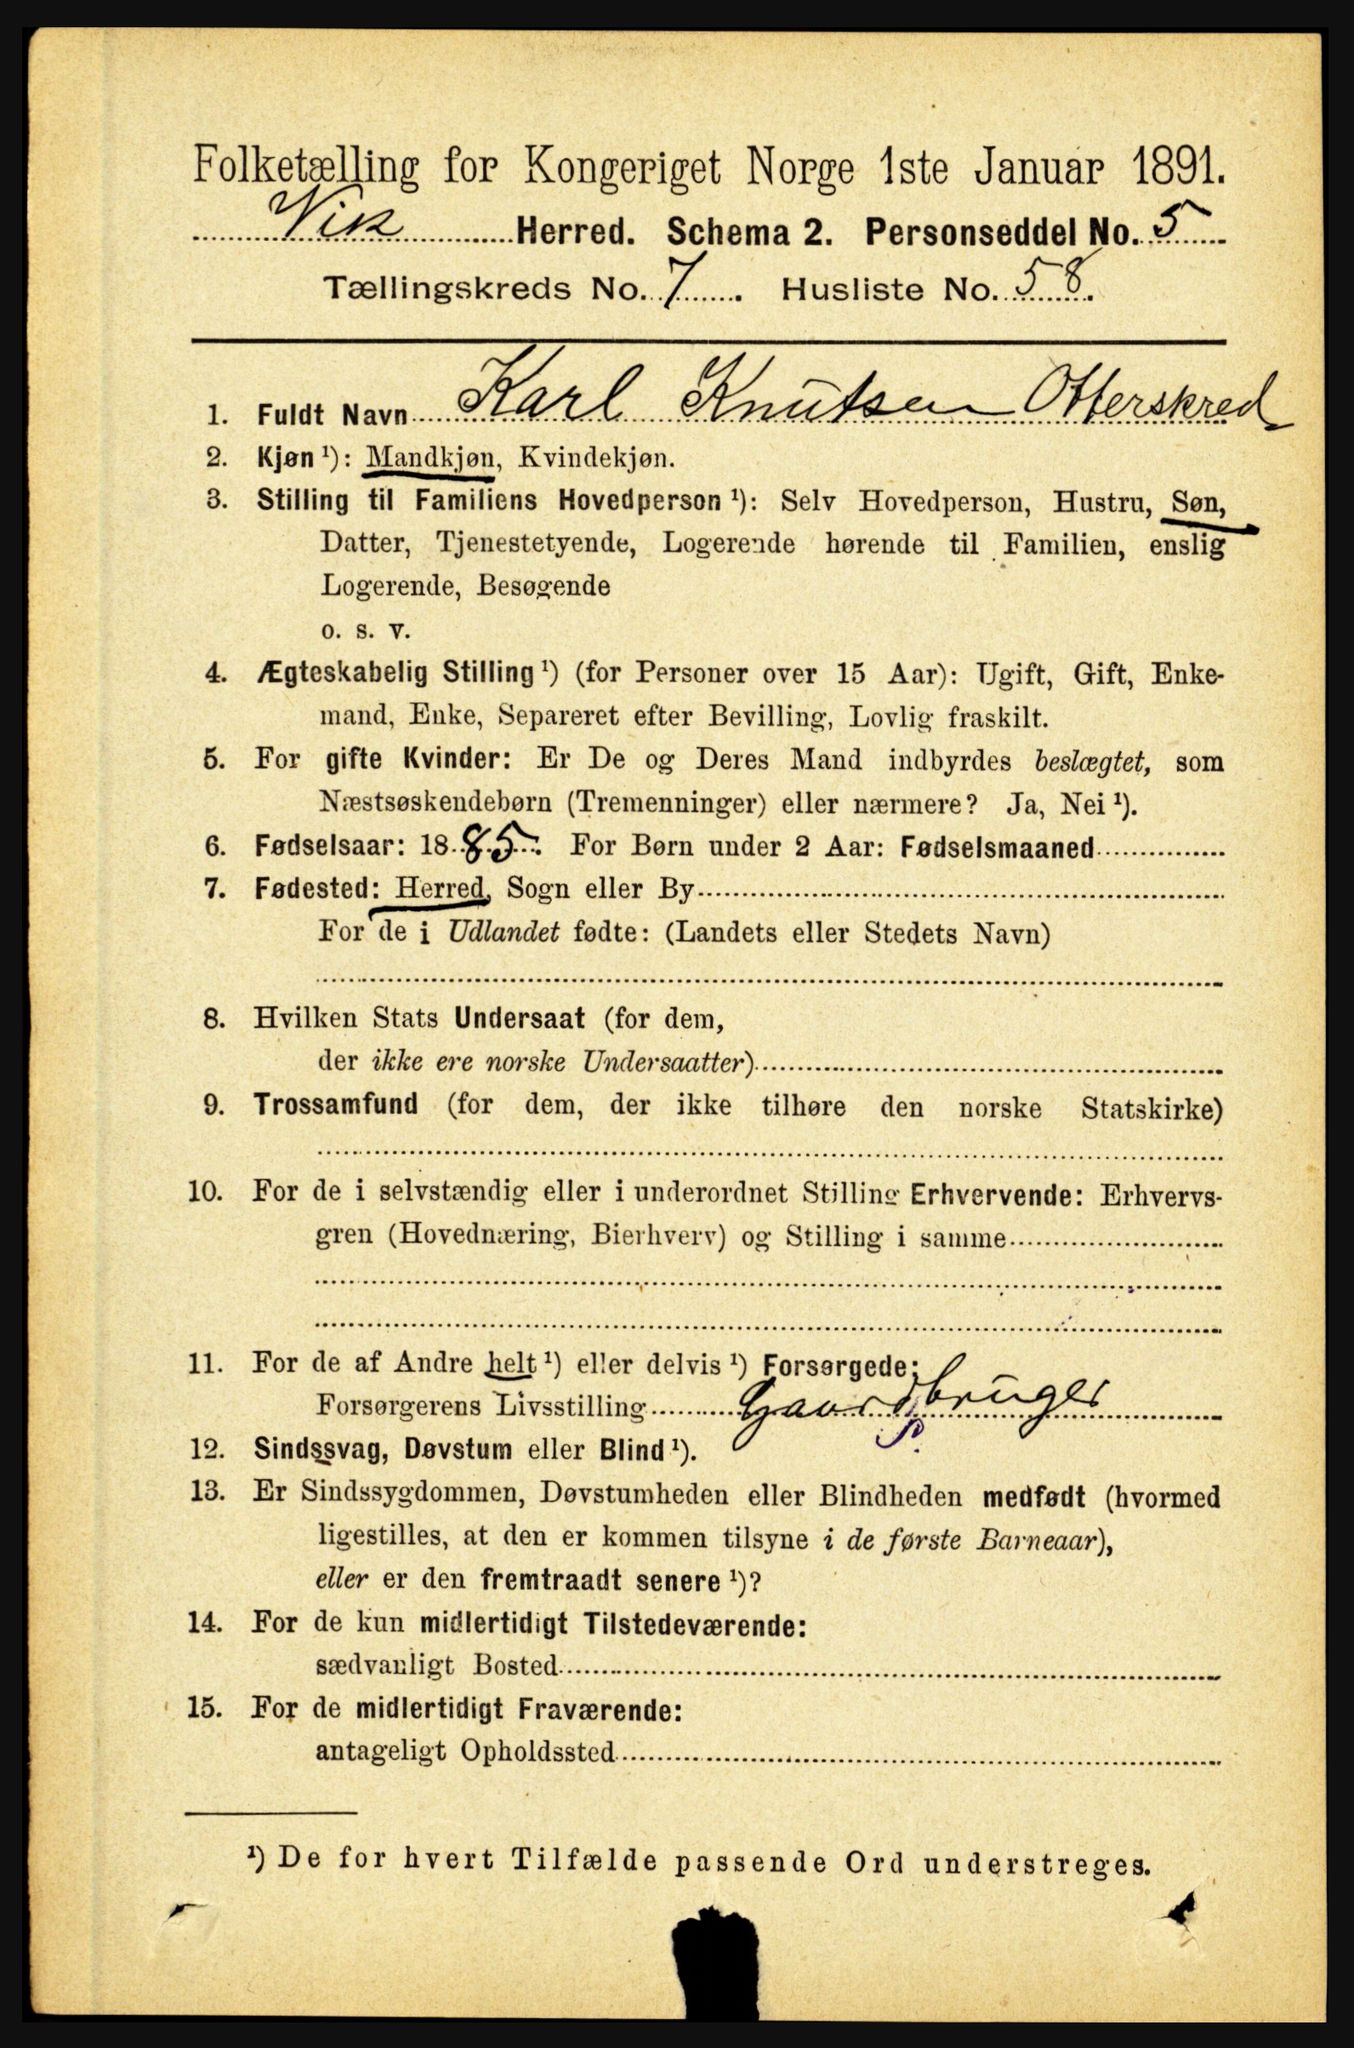 Folketælling for Kongeriget Norge 1ste Januar 1891.
Vik Herred. Schema 2. Personseddel No. 5
Tællingskreds No. 7. Husliste No. 58.
1. Fuldt Navn Karl Knutsen Otterskred
2. Kjøn ¹): Mandkjøn, Kvindekjøn.
3. Stilling til Familiens Hovedperson ¹): Selv Hovedperson, Hustru, Søn,
Datter, Tjenestetyende, Logerende hørende til Familien, enslig
Logerende, Besøgende
o. s. v.
4. Ægteskabelig Stilling ¹) (for Personer over 15 Aar): Ugift, Gift, Enke-
mand, Enke, Separeret efter Bevilling, Lovlig fraskilt.
5. For gifte Kvinder: Er De og Deres Mand indbyrdes beslægtet, som
Næstsøskendebørn (Tremenninger) eller nærmere? Ja, Nei ¹).
6. Fødselsaar: 1885. For Børn under 2 Aar: Fødselsmaaned
7. Fødested: Herred, Sogn eller By
For de i Udlandet fødte: (Landets eller Stedets Navn)
8. Hvilken Stats Undersaat (for dem,
der ikke ere norske Undersaatter)
9. Trossamfund (for dem, der ikke tilhøre den norske Statskirke)
10. For de i selvstændig eller i underordnet Stilling Erhvervende: Erhvervs-
gren (Hovednæring, Bierhverv) og Stilling i samme
11. For de af Andre helt ¹) eller delvis ¹) Forsørgede:
Forsørgerens Livsstilling Gaardbruger
12. Sindssvag, Døvstum eller Blind ¹).
13. Er Sindssygdommen, Døvstumheden eller Blindheden medfødt (hvormed
ligestilles, at den er kommen tilsyne i de første Barneaar),
eller er den fremtraadt senere ¹)?
14. For de kun midlertidigt Tilstedeværende:
sædvanligt Bosted
15. For de midlertidigt Fraværende:
antageligt Opholdssted
¹) De for hvert Tilfælde passende Ord understreges.